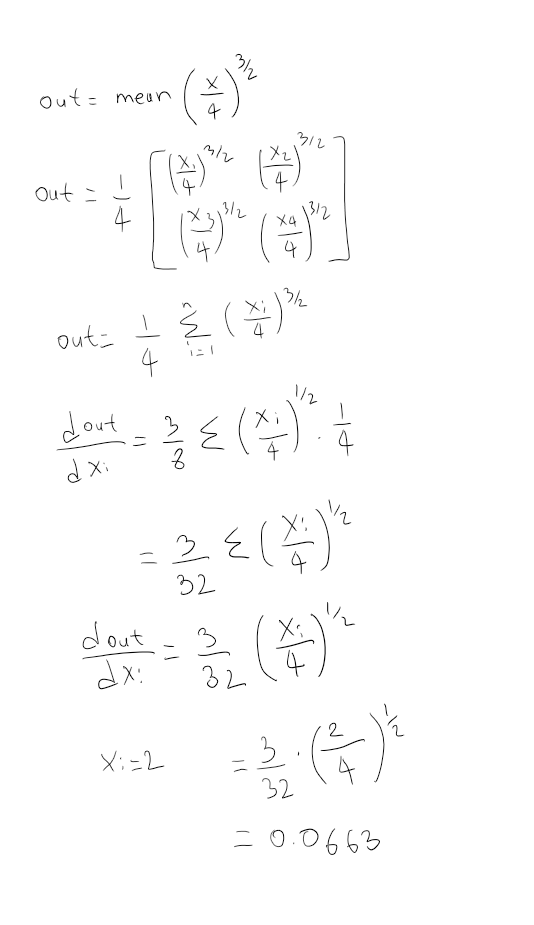 out = mean (x/4)^3/2
out = 1/4 [ (x₁/4)^3/2 (x₂/4)^3/2
(x₃/4)^3/2 (x₄/4)^3/2 ]
out = 1/4 Σ_{i=1}^{n} (xi/4)^3/2
dout/dxi = 3/8 Σ (xi/4)^1/2 · 1/4
= 3/32 Σ (xi/4)^1/2
dout/dxi = 3/32 (xi/4)^1/2
xi=2 = 3/32 · (2/4)^1/2
= 0.0663